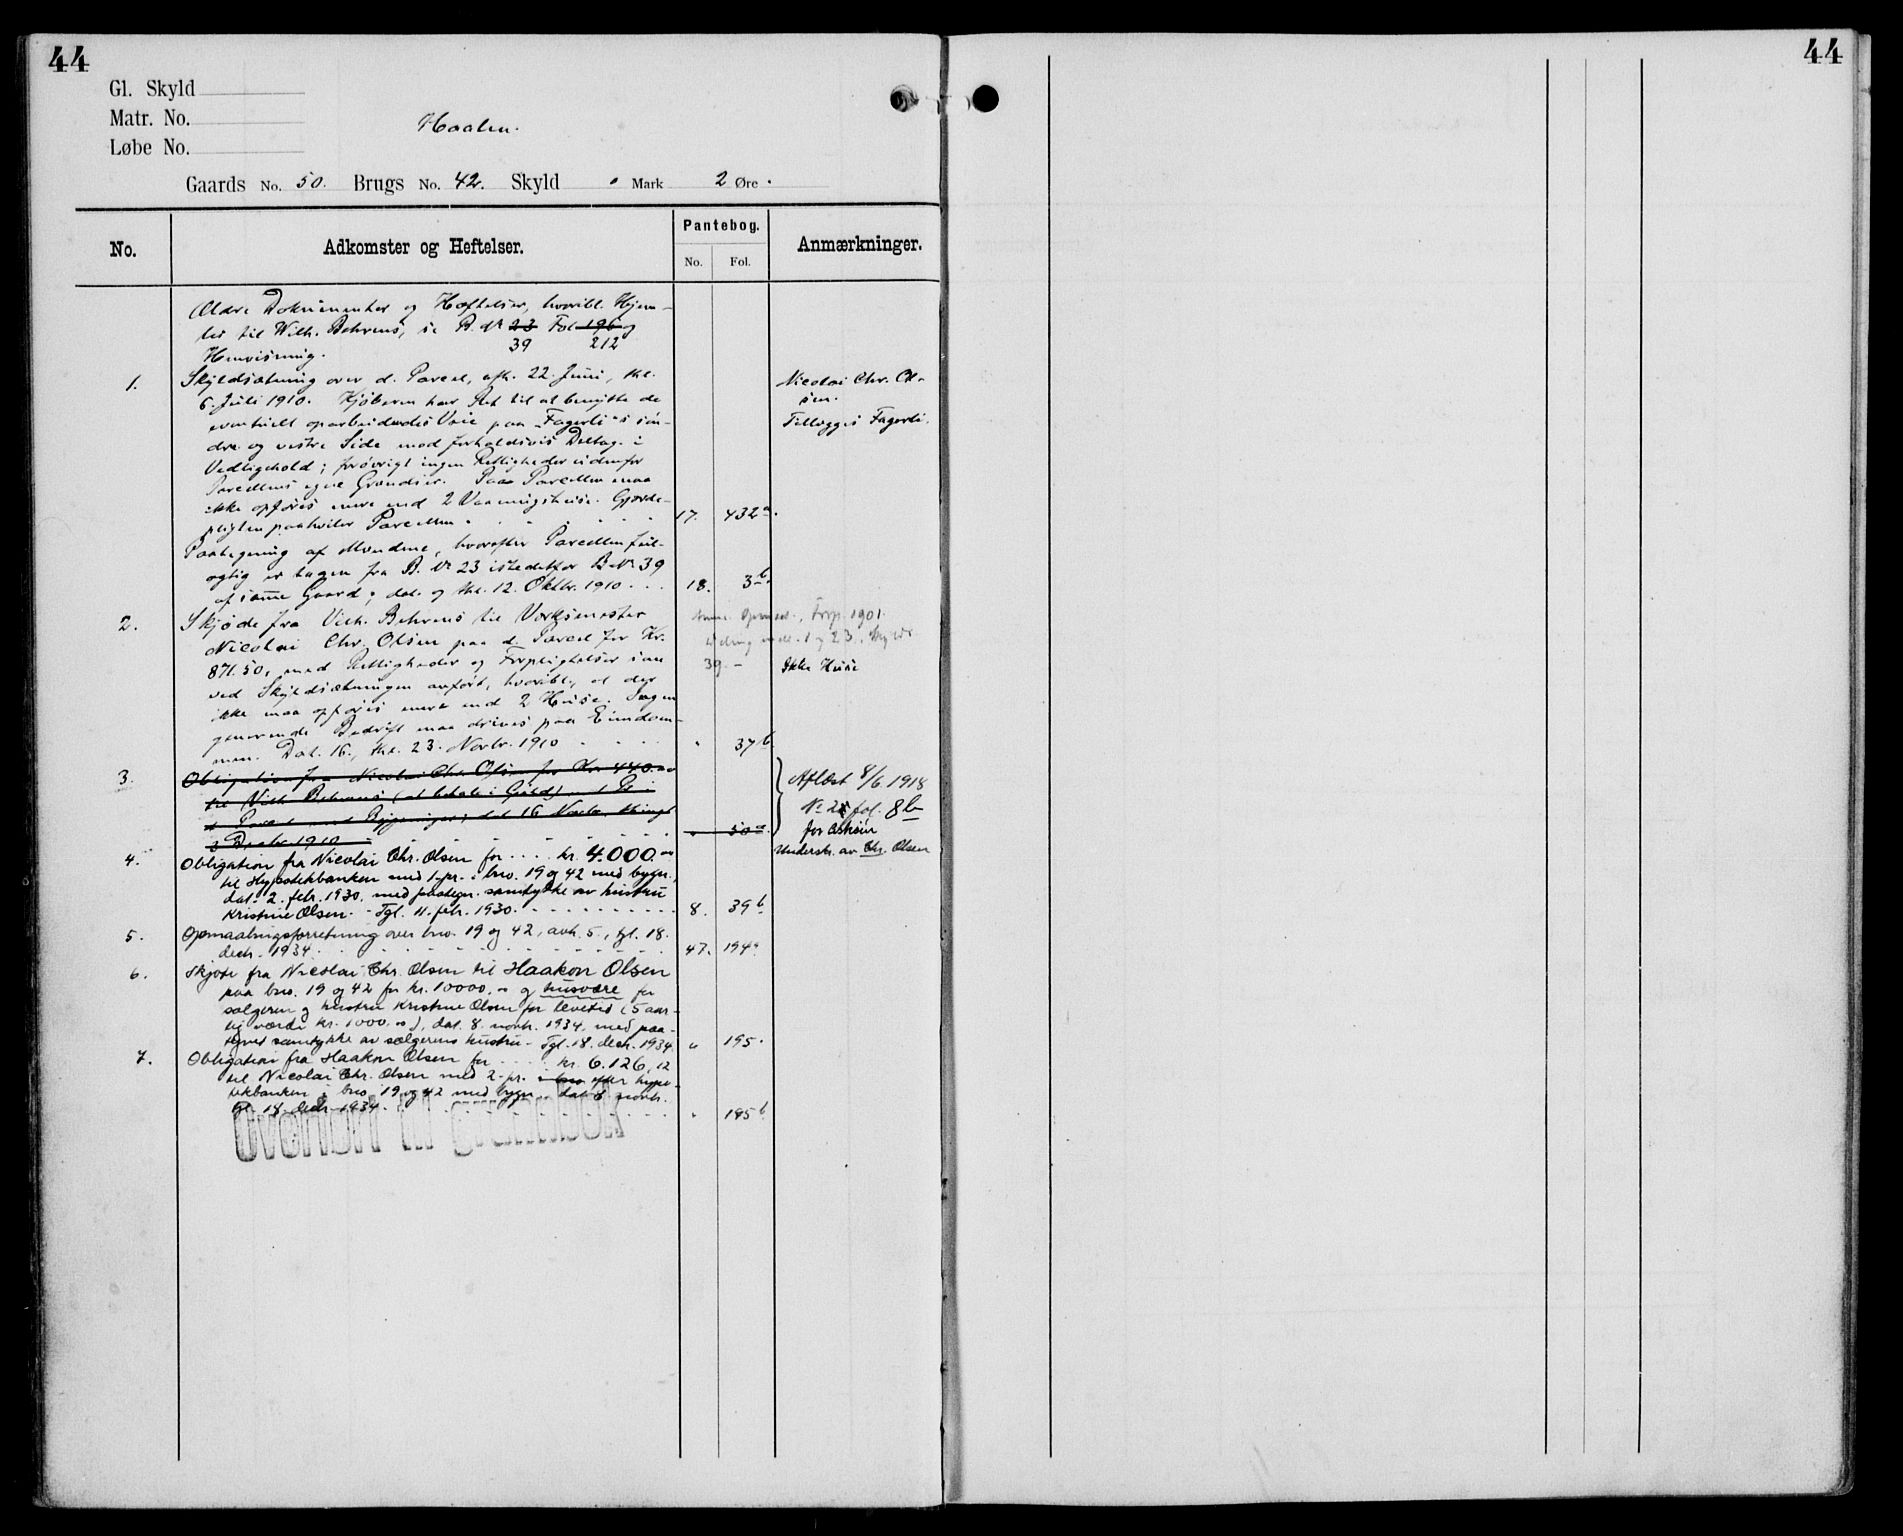 44
44
Gl. Skyld
Matr. No.
Løbe No.
Haalen.
Gaards No. 50. Brugs No. 42. Skyld " Mark 2 Øre.
No.
Adkomster og Heftelser.
Pantebog.
No. Fol.
Anmærkninger.
Ældre Dokumenter og Hæftelser, hvoribl. Hjem-
let til Wilh. Behrens, se B. № 23 Fol 196 og
39 212
Henvisning.
1. Skyldsætning over d. Parcel, afh. 22. Juni, thl.
6. Juli 1910. Kjøberen har Ret til at benytte de
eventuelt oparbeidendes Veie paa "Fagerli"s søn-
dre og vestre Side mod forholdsvis Deltag. i
Vedligehold; forøvrigt ingen Rettigheder udenfor
Parcellens egne Grændser. Paa Parcellen maa
ikke opføres mere end 2 Vaaningshuse. Gjerde-
pligten paahviler Parcellen. 17. 432a.
Nicolai Chr. Ol-
sen.
Tillægges Fagerli.
Paategning af Mendene, hvorefter Parcellen feil-
agtig er tagen fra B. № 23 istedetfor B № 39
af samme Gaard; dat. og thl. 12. Oktbr. 1910 18. 3b.
2. Skjøde fra Vilh. Behrens til Verksmester
Nicolai Chr. Olsen paa d. Parcel for Kr.
871.50, med Rettigheder og Forpligtelser som
ved Skyldsætningen anført, hvoribl., at der
ikke maa opføres mere end 2 Huse. Ingen
generende Bedrift maa drives paa Eiendom-
men. Dat. 16., thl. 23. Novbr. 1910 " 37b
1901.
1 og 23
39 -
Ikke Huse
3. Obligation fra Nicolai Chr. Olsen for Kr 440.00
til Vilh. Behrens (at betale i Guld) med Pr. i
d. Parcel med Bygninger; dat 16 Novbr, thingl
3 Decbr 1910 " 50a.
Aflæst 8/6 1918
№ 25 fol. 8b
for Askøen
4. Obligation fra Nicolai Chr. Olsen for kr. 4.000.00
til Hypotekbanken med 1. pr. i bno. 19 og 42 med bygn.,
dat. 2. febr. 1930, med paategn. samtykke av hustru
Kristine Olsen. - Tgl. 11. febr. 1930. 8. 39b
Underskr. av Chr. Olsen
5. Opmaalingsforretning over bno. 19 og 42, avh. 5., tgl. 18.
decbr. 1934. 47. 194a
6. Skjøte fra Nicolai Chr. Olsen til Haakon Olsen
paa bno. 19 og 42 for kr. 10000.00 og husvære for
sælgeren og hustru Kristine Olsen for levetid (5 aar-
lig værdi kr. 1000.00), dat. 8. novbr. 1934, med paa-
tegnet samtykke av sælgerens hustru - Tgl. 18. decbr. 1934. " 195.
7. Obligation fra Haakon Olsen for kr. 6.126,12
til Nicolai Chr. Olsen med 2. pr. i bno efter hypo-
tekbanken i bno 19 og 42 med bygn. dat 8 novbr.
tgl 18. decbr 1934. " 195b
Overført til grunnbok